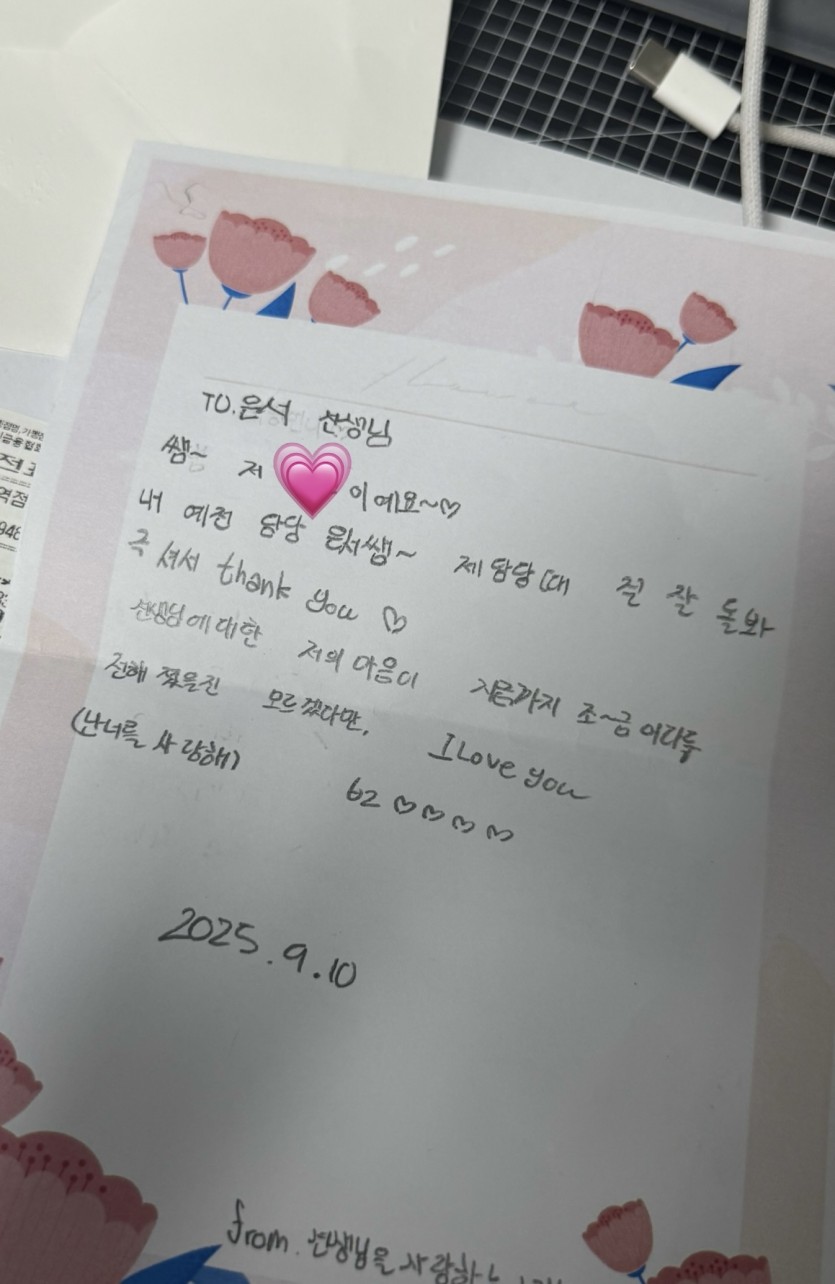 TO.은서 선생님
쌤~ 저 이예요~♡
내 예전 담당 은서쌤~ 제 담당 때 절 잘 돌봐
주셔서 thank you ♡
선생님에 대한 저의 마음이 지금까지 조~금 이라두
전해 졌을진 모르겠다만, I Love you
(난너를 사랑해) 62 ♡♡♡♡
2025.9.10
from. 선생님을 사랑하는